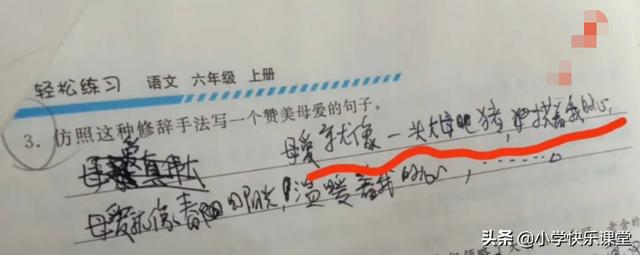 轻松练习 语文 六年级 上册
3. 仿照这种修辞手法写一个赞美母爱的句子。
母爱就像一头大母肥猪,
母爱真伟大
母爱就像春日阳光,温暖着我的心,……。
头条 @小学快乐课堂